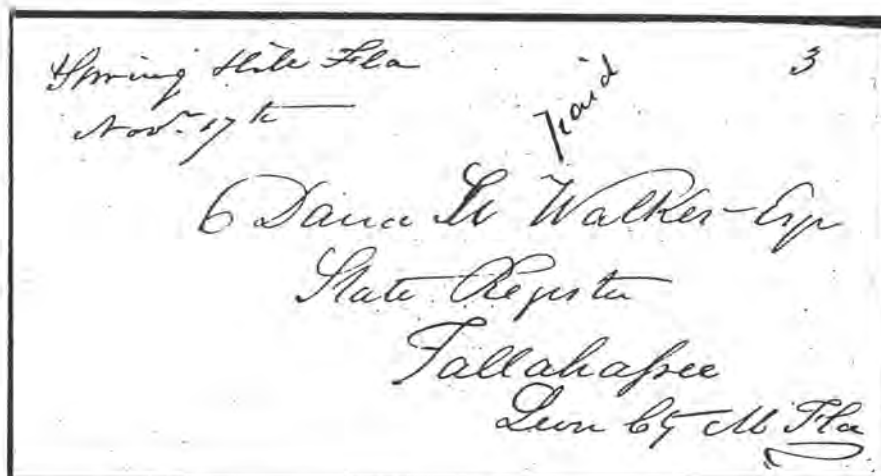 Spring Hill Fla 3
Nov. 17th
Paid
Walker Esq
State Register
Tallahassee
Leon Cty M Fla